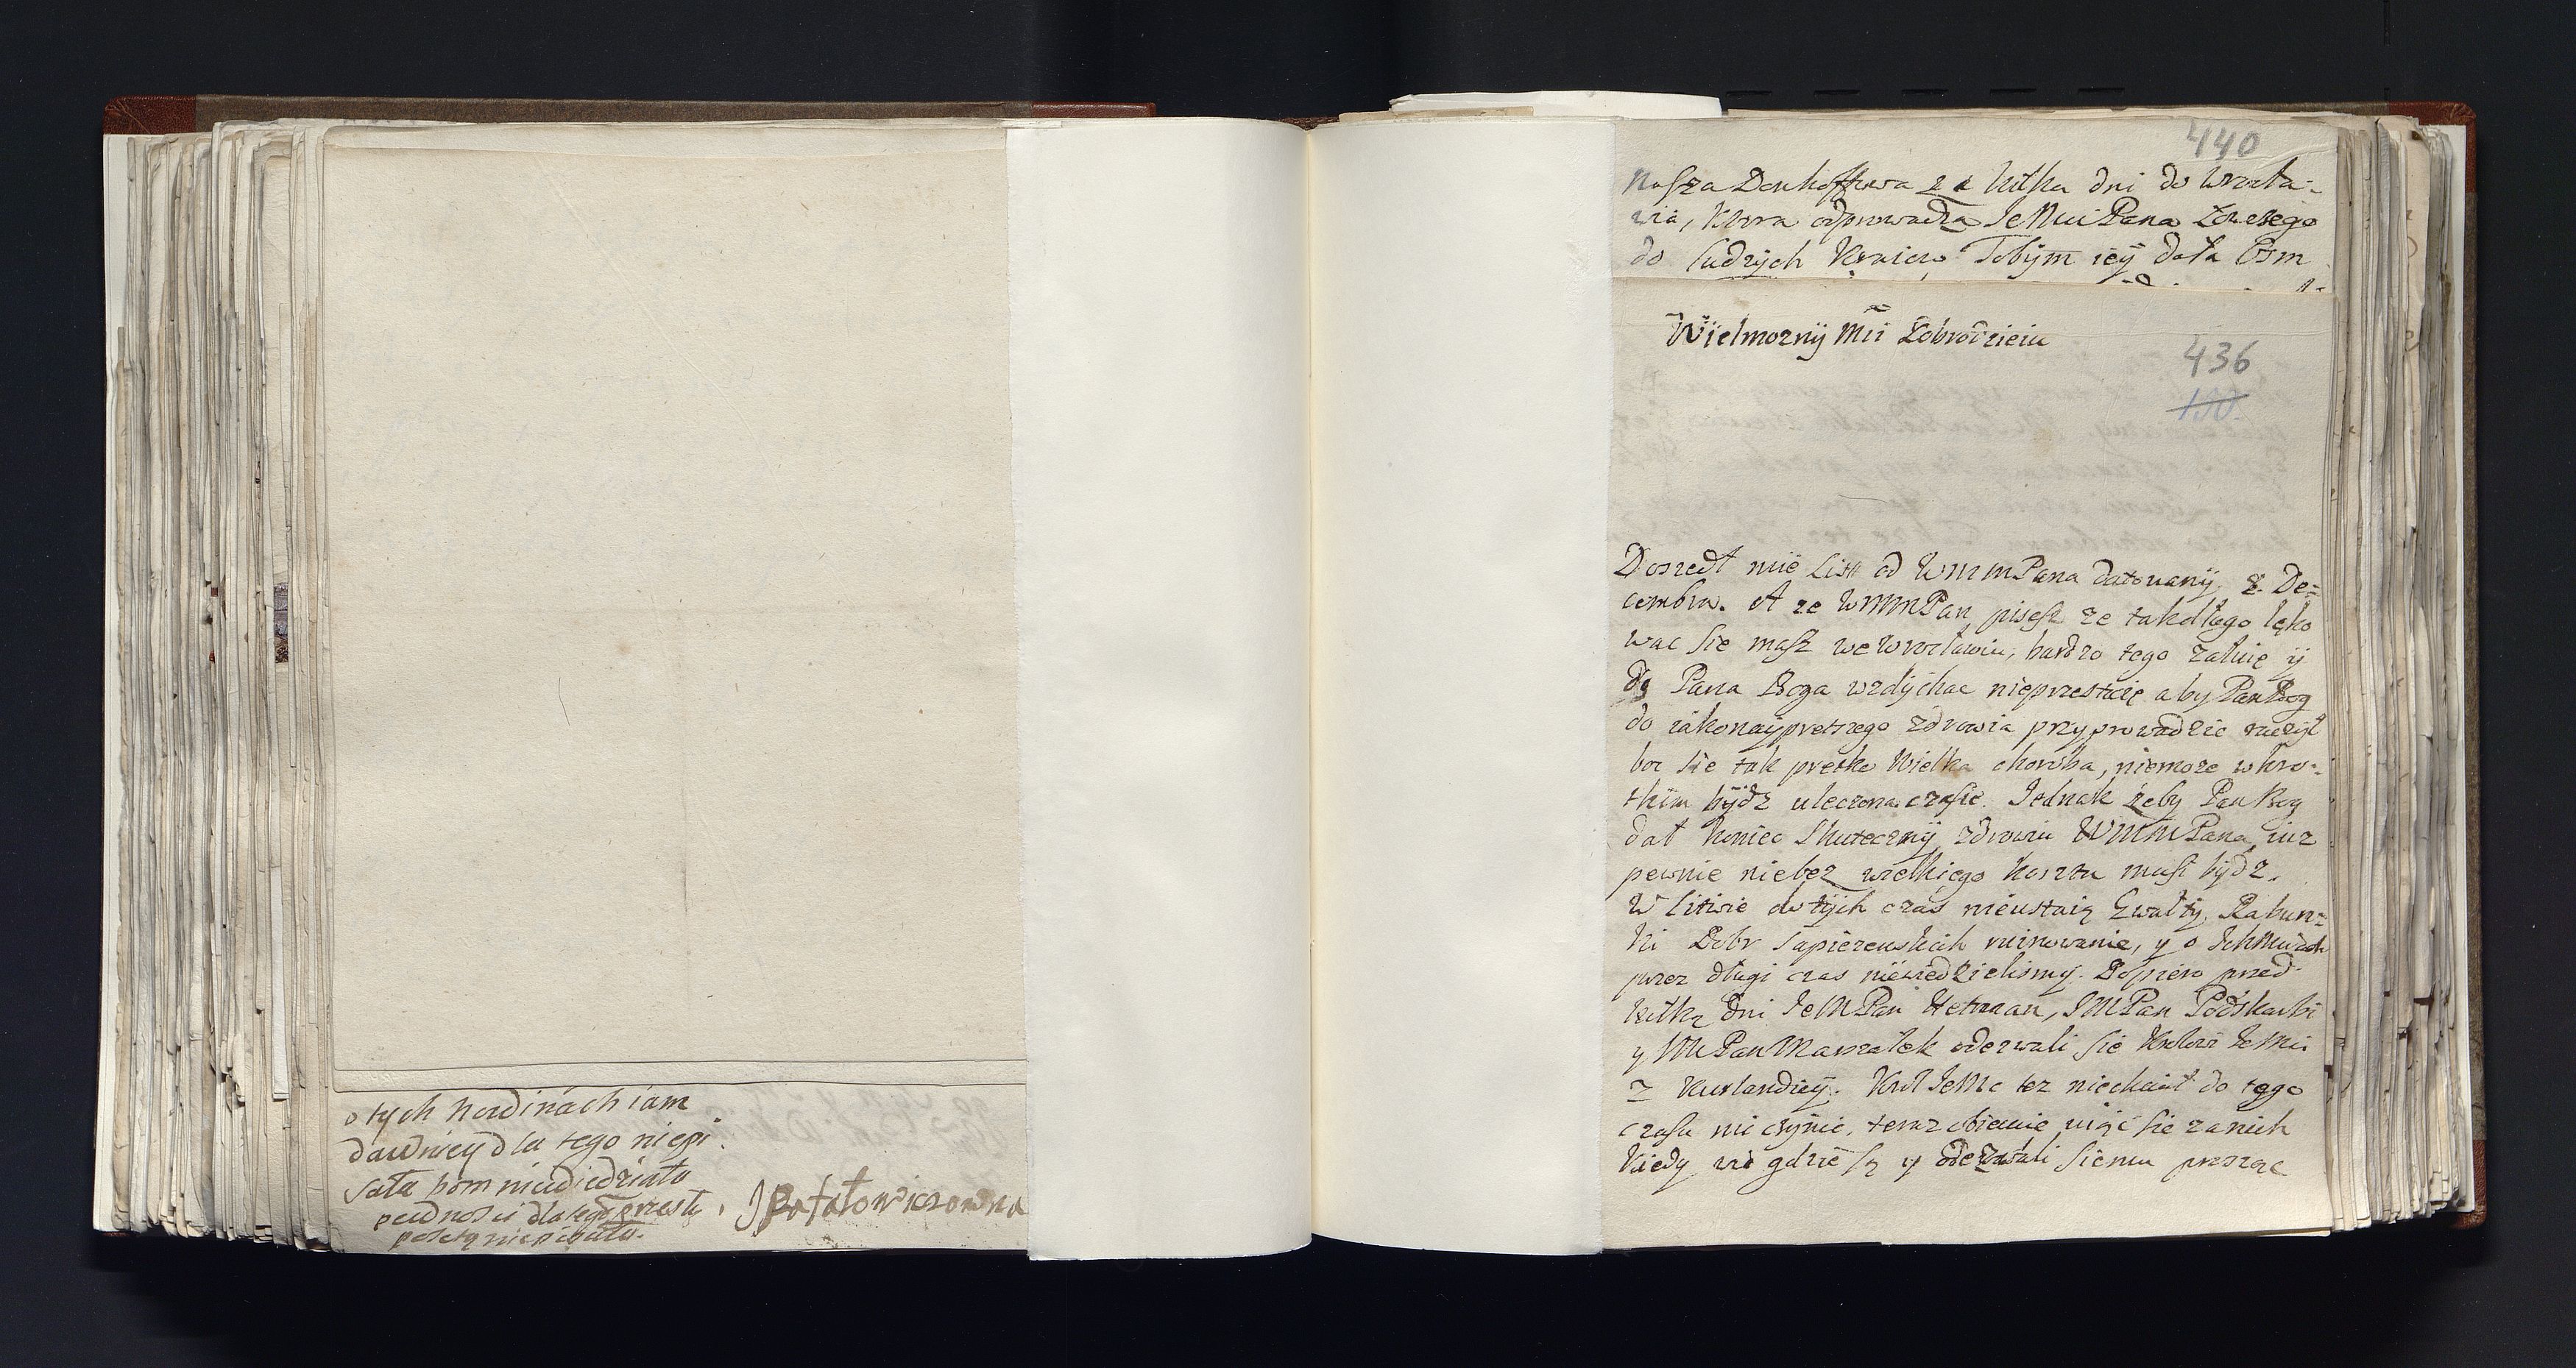 o tych nowinach iam
dawniey dla tego niepi
sała bom niewiedziała
pewnosci dla tego przeszłą
pocztą niepisała.
J Potatowiczowna
440
Nasza Denhoffowa za kilka dni do Wrocła-
wia, ktora odprowadza JeMci Pana
do Cudzych Kraiow Tobym iey dała
Wielmozny Mci Dobrodzieiu
436
Doszedł mie List od WMMPana datowany 2 De-
cembra. A ze WMMPan piszesz ze tak długo
wac sie masz we Wrocławiu, bardzo tego załuię y
do Pana Boga wzdychac nieprzestaię aby Pan Bog
do iako nayprętszego zdrowia przyprowadzic raczył
boc sie tak prętko Wielka choroba, niemoze w kro-
tkim bydz uleczona czasie. Jednak zeby Pan Bog
dał koniec skuteczny zdrowiu WMMPana, iuz
pewnie niebez wielkiego kosztu musi bydz.
W Litwie do tych czas nieustaią Gwałty, Rabun-
ki Dobr Sapiezenskich ruinowanie, y o IchMciach
przez długi czas niewiedzielismy. Dopiero przed
kilką dni JeMPan Hetman, JMPan Podskarbi
y JMPan Marszałek oderwali sie Krolowi JeMci
z Kurlandiey. Krol JeMc tez niechciał do tego
czasu nic czynic, teraz obiecuie uiąc sie za nich
kiedy wie gdzie są y oderwali sie mu prosząc